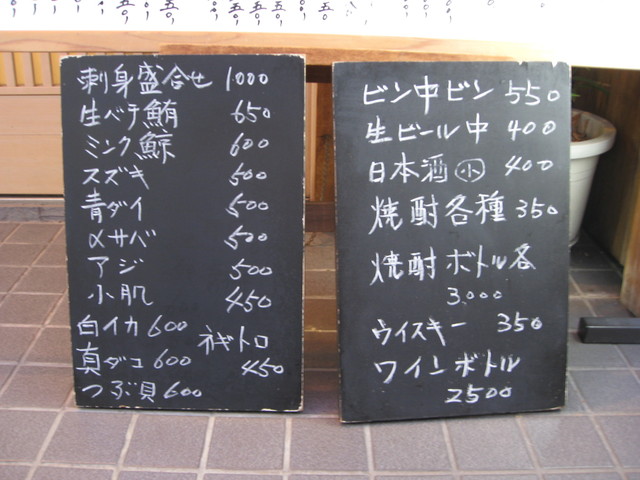 刺身盛合せ 1000
生バチ鮪 650
ミンク鯨 600
スズキ 500
青ダイ 500
〆サバ 500
アジ 500
小肌 450
白イカ 600
真ダコ 600
つぶ貝 600
ネギトロ
450
ビン中ビン 550
生ビール中 400
日本酒㊙小 400
焼酎各種 350
焼酎ボトル各
3,000
ウイスキー 350
ワインボトル
2500